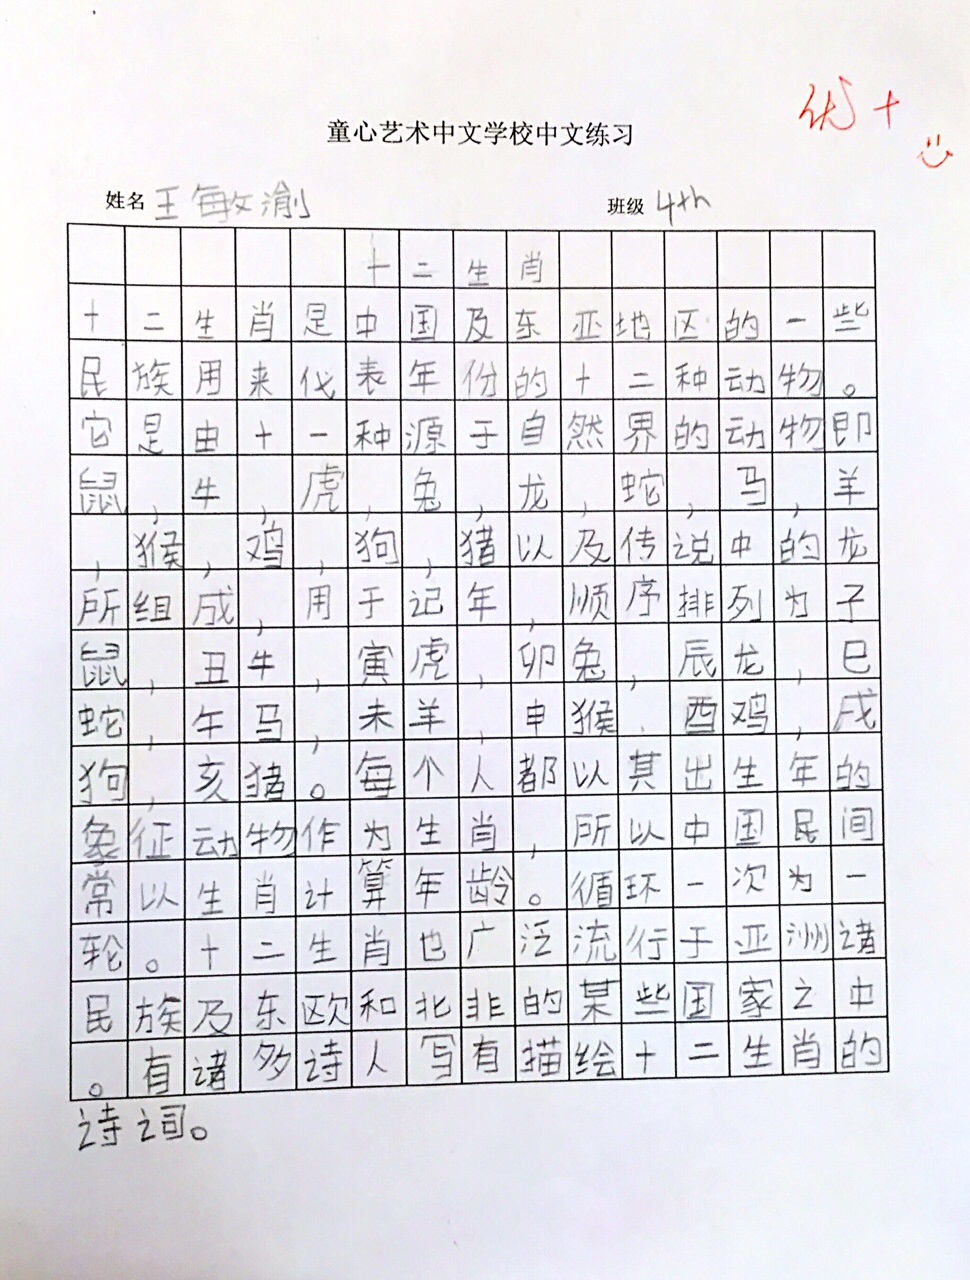 优+
童心艺术中文学校中文练习
姓名 王敏渝 班级 4th
十二生肖
十二生肖是中国及东亚地区的一些
民族用来代表年份的十二种动物。
它是由十一种源于自然界的动物即
鼠,牛,虎,兔,龙,蛇,马,羊
,猴,鸡,狗,猪以及传说中的龙
所组成,用于记年,顺序排列为子
鼠,丑牛,寅虎,卯兔,辰龙,巳
蛇,午马,未羊,申猴,酉鸡,戌
狗,亥猪。每个人都以其出生年的
象征动物作为生肖,所以中国民间
常以生肖计算年龄。循环一次为一
轮。十二生肖也广泛流行于亚洲诸
民族及东欧和北非的某些国家之中
。有诸多诗人写有描绘十二生肖的
诗词。